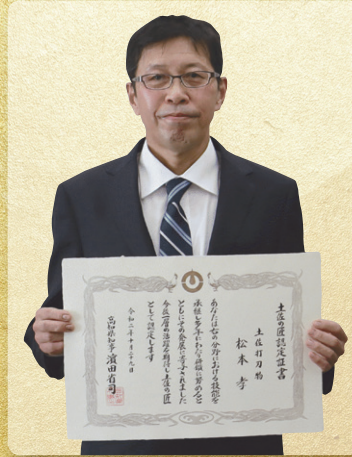 土佐の匠認定証書
土佐打刃物
松本 孝
あなたは右の分野における技能を
承継し多年にわたり研鑽に努めると
ともにその発展に寄与されました
今後一層の活躍を期待し土佐の匠
として認定します
令和二年十月二十九日
高知県知事 濵田省司